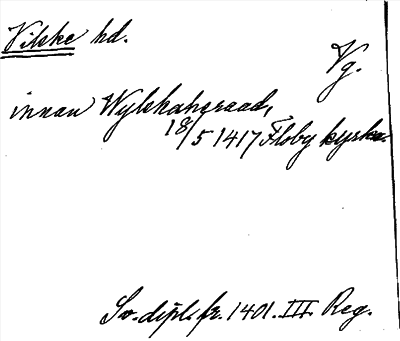 Vilske hd.
Vg.
innan Wylskahæraad,
18/5 1417 Floby kyrka.
Sv. dipl. fr. 1401. III. Reg.